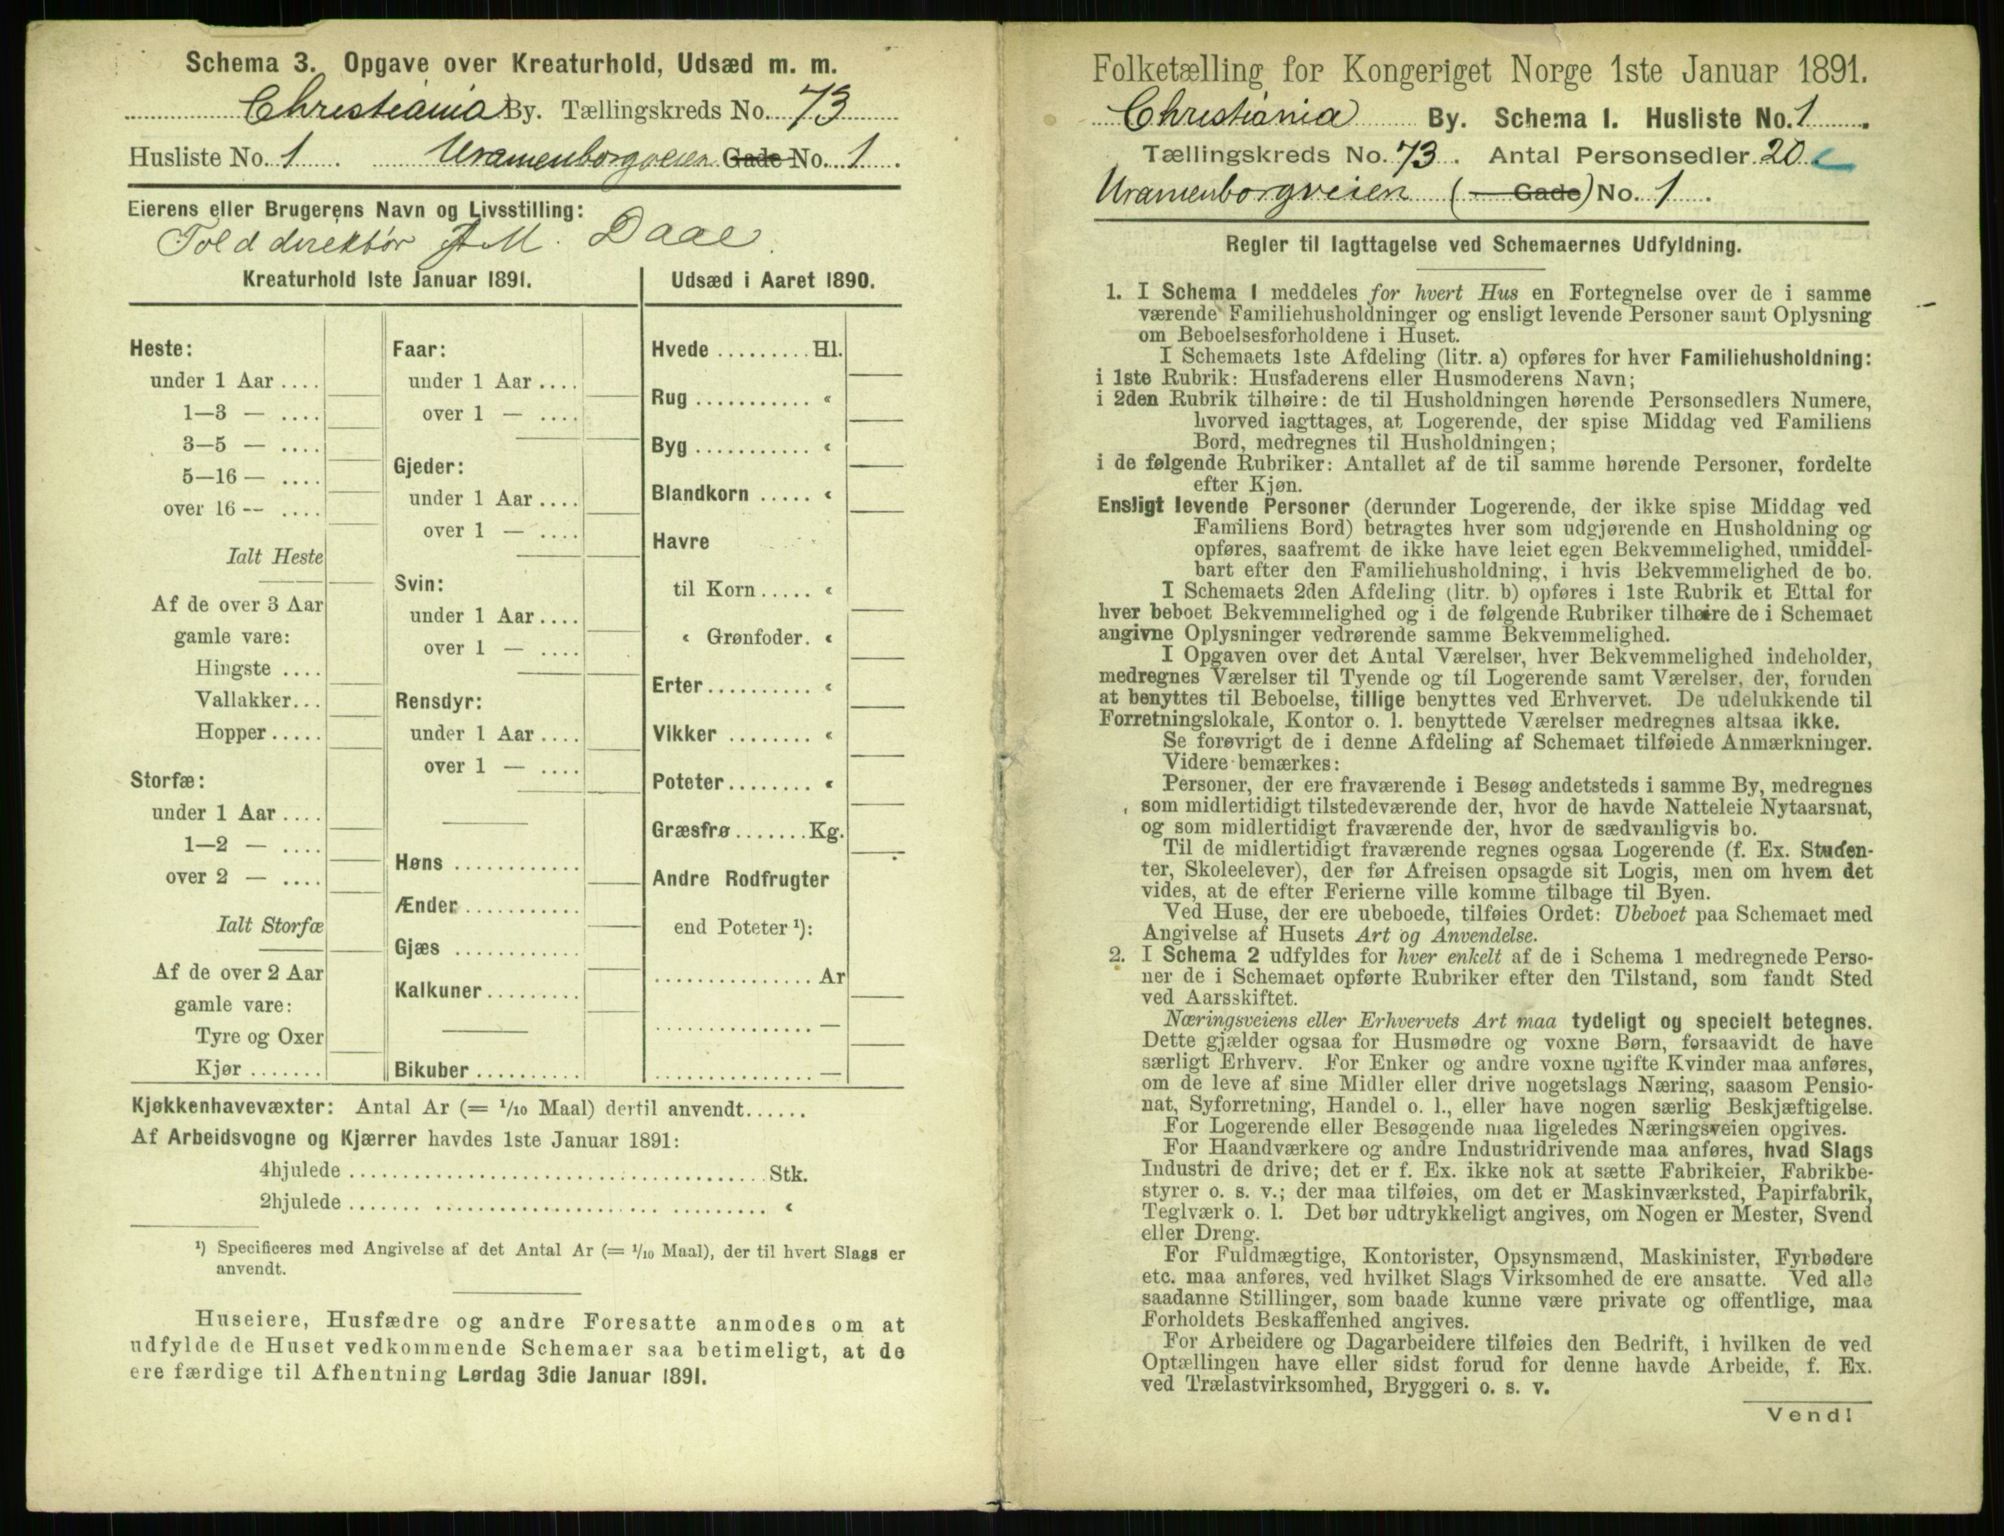 Schema 3. Opgave over Kreaturhold, Udsæd m. m.
Christiania By. Tællingskreds No. 73
Husliste No. 1 Uranienborgveien Gade No. 1.
Eierens eller Brugerens Navn og Livsstilling:
Tolddirektør A M. Daae.
Kreaturhold 1ste Januar 1891.
Heste:
under 1 Aar ....
1—3 — ....
3—5 — ....
5—16 — ....
over 16 -- ....
Ialt Heste
Af de over 3 Aar
gamle vare:
Hingste ....
Vallakker...
Hopper.....
Storfæ:
under 1 Aar ....
1—2 — ....
over 2 — ....
Ialt Storfæ
Af de over 2 Aar
gamle vare:
Tyre og Oxer
Kjør .......
Faar:
under 1 Aar ....
over 1 — ....
Gjeder:
under 1 Aar ....
over 1 — ....
Svin:
under 1 Aar ....
over 1 — ....
Rensdyr:
under 1 Aar ....
over 1 — ....
Høns ............
Ænder ...........
Gjæs ............
Kalkuner.........
Bikuber ..........
Udsæd i Aaret 1890.
Hvede ......... Hl.
Rug ........... «
Byg ........... «
Blandkorn ..... «
Havre
til Korn ..... «
« Grønfoder. «
Erter.......... «
Vikker ........ «
Poteter........ «
Græsfrø ....... Kg.
Andre Rodfrugter
end Poteter ¹):
............... Ar
............... —
............... —
Kjøkkenhavevæxter: Antal Ar (= 1/10 Maal) dertil anvendt......
Af Arbeidsvogne og Kjærrer havdes 1ste Januar 1891:
4hjulede ...................................... Stk.
2hjulede ...................................... «
¹) Specificeres med Angivelse af det Antal Ar (= 1/10 Maal), der til hvert Slags er
anvendt.
Huseiere, Husfædre og andre Foresatte anmodes om at
udfylde de Huset vedkommende Schemaer saa betimeligt, at de
ere færdige til Afhentning Lørdag 3die Januar 1891.
Folketælling for Kongeriget Norge 1ste Januar 1891.
Christiania By. Schema 1. Husliste No. 1.
Tællingskreds No. 73. Antal Personsedler 20
Uranienborgveien (— Gade) No. 1.
Regler til Iagttagelse ved Schemaernes Udfyldning.
1. I Schema 1 meddeles for hvert Hus en Fortegnelse over de i samme
værende Familiehusholdninger og ensligt levende Personer samt Oplysning
om Beboelsesforholdene i Huset.
I Schemaets 1ste Afdeling (litr. a) opføres for hver Familiehusholdning:
i 1ste Rubrik: Husfaderens eller Husmoderens Navn;
i 2den Rubrik tilhøire: de til Husholdningen hørende Personsedlers Numere,
hvorved iagttages, at Logerende, der spise Middag ved Familiens
Bord, medregnes til Husholdningen;
i de følgende Rubriker: Antallet af de til samme hørende Personer, fordelte
efter Kjøn.
Ensligt levende Personer (derunder Logerende, der ikke spise Middag ved
Familiens Bord) betragtes hver som udgjørende en Husholdning og
opføres, saafremt de ikke have leiet egen Bekvemmelighed, umiddel-
bart efter den Familiehusholdning, i hvis Bekvemmelighed de bo.
I Schemaets 2den Afdeling (litr. b) opføres i 1ste Rubrik et Ettal for
hver beboet Bekvemmelighed og i de følgende Rubriker tilhøire de i Schemaet
angivne Oplysninger vedrørende samme Bekvemmelighed.
I Opgaven over det Antal Værelser, hver Bekvemmelighed indeholder,
medregnes Værelser til Tyende og til Logerende samt Værelser, der, foruden
at benyttes til Beboelse, tillige benyttes ved Erhvervet. De udelukkende til
Forretningslokale, Kontor o. l. benyttede Værelser medregnes altsaa ikke.
Se forøvrigt de i denne Afdeling af Schemaet tilføiede Anmærkninger.
Videre bemærkes:
Personer, der ere fraværende i Besøg andetsteds i samme By, medregnes
som midlertidigt tilstedeværende der, hvor de havde Natteleie Nytaarsnat,
og som midlertidigt fraværende der, hvor de sædvanligvis bo.
Til de midlertidigt fraværende regnes ogsaa Logerende (f. Ex. Studen-
ter, Skoleelever), der før Afreisen opsagde sit Logis, men om hvem det
vides, at de efter Ferierne ville komme tilbage til Byen.
Ved Huse, der ere ubeboede, tilføies Ordet: Ubeboet paa Schemaet med
Angivelse af Husets Art og Anvendelse.
2. I Schema 2 udfyldes for hver enkelt af de i Schema 1 medregnede Perso-
ner de i Schemaet opførte Rubriker efter den Tilstand, som fandt Sted
ved Aarsskiftet.
Næringsveiens eller Erhvervets Art maa tydeligt og specielt betegnes.
Dette gjælder ogsaa for Husmødre og voxne Børn, forsaavidt de have
særligt Erhverv. For Enker og andre voxne ugifte Kvinder maa anføres,
om de leve af sine Midler eller drive nogetslags Næring, saasom Pensio-
nat, Syforretning, Handel o. l., eller have nogen særlig Beskjæftigelse.
For Logerende eller Besøgende maa ligeledes Næringsveien opgives.
For Haandværkere og andre Industridrivende maa anføres, hvad Slags
Industri de drive; det er f. Ex. ikke nok at sætte Fabrikeier, Fabrikbe-
styrer o. s. v.; der maa tilføies, om det er Maskinværksted, Papirfabrik,
Teglværk o. l. Det bør udtrykkeligt angives, om Nogen er Mester, Svend
eller Dreng.
For Fuldmægtige, Kontorister, Opsynsmænd, Maskinister, Fyrbødere
etc. maa anføres, ved hvilket Slags Virksomhed de ere ansatte. Ved alle
saadanne Stillinger, som baade kunne være private og offentlige, maa
Forholdets Beskaffenhed angives.
For Arbeidere og Dagarbeidere tilføies den Bedrift, i hvilken de ved
Optællingen have eller sidst forud for denne havde Arbeide, f. Ex.
ved Trælastvirksomhed, Bryggeri o. s. v.
Vend!